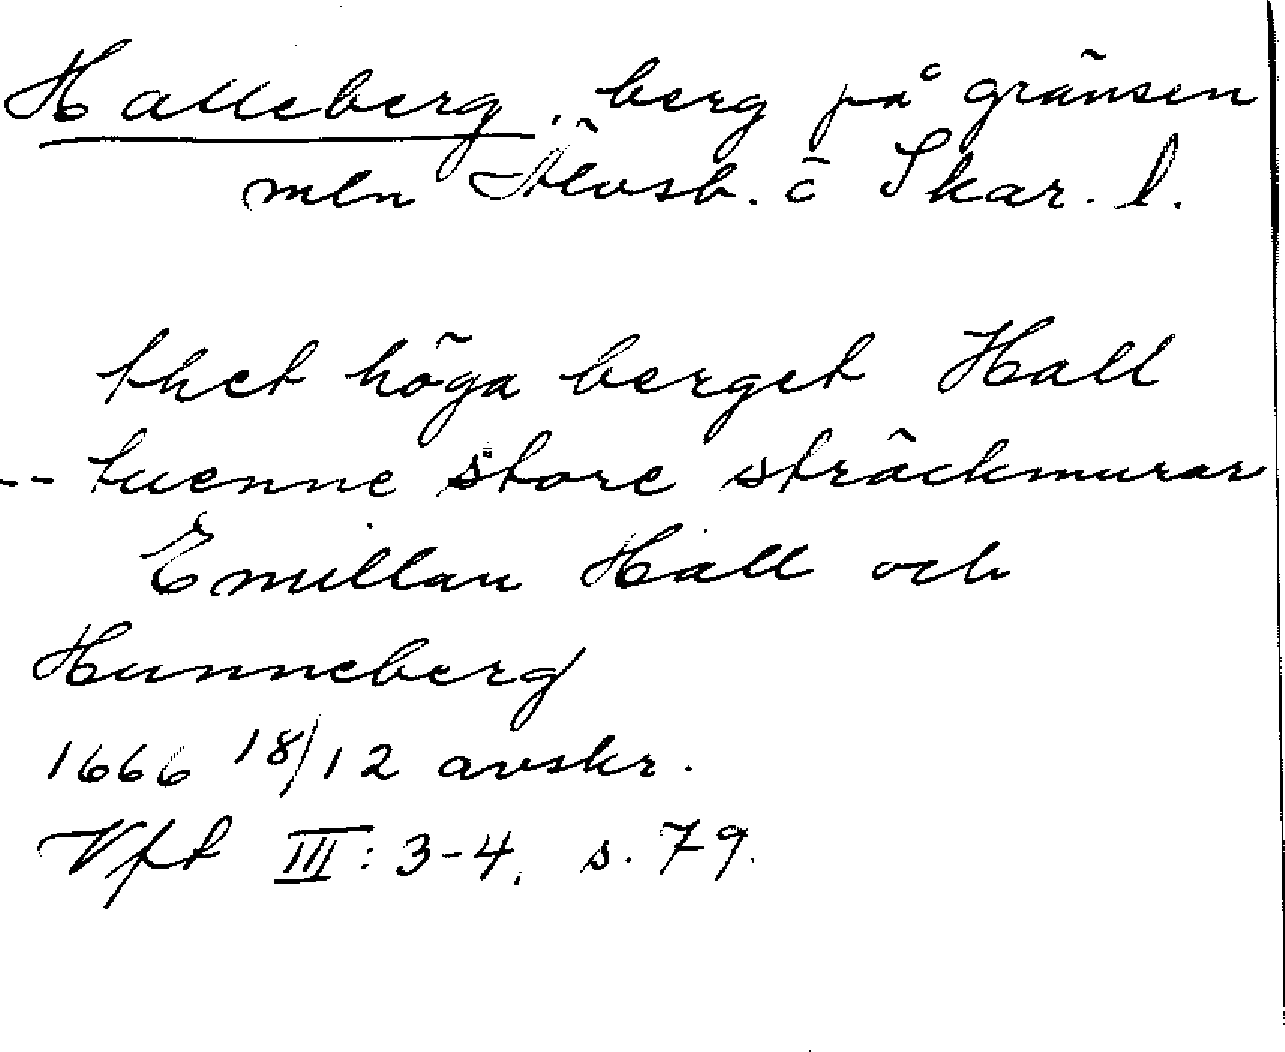 Halleberg, berg på gränsen
mln Älvsb. o Skar. l.
thet höga berget Hall
-- tuenne store sträckmurar
Emillan Hall och
Hunneberg
1666 18/12 avskr.
Vft III: 3-4, s. 79.